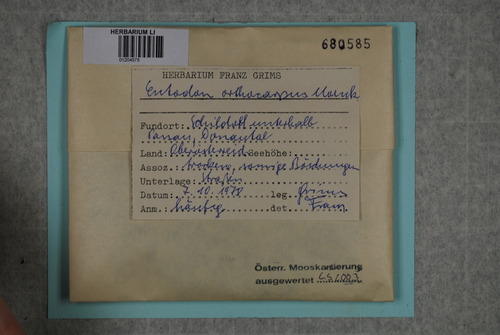 HERBARIUM LI
680585
HERBARIUM FRANZ GRIMS
Entodon orthocarpus
Fundort: unterhalb
Donautal
Land: Oberösterreich Seehöhe:
Assoz. trockene, sonnige Böschungen
Unterlage:
Datum: 7.10.1978 leg. Grims
Anm.: häufig det. Franz
Österr. Mooskartierung
ausgewertet